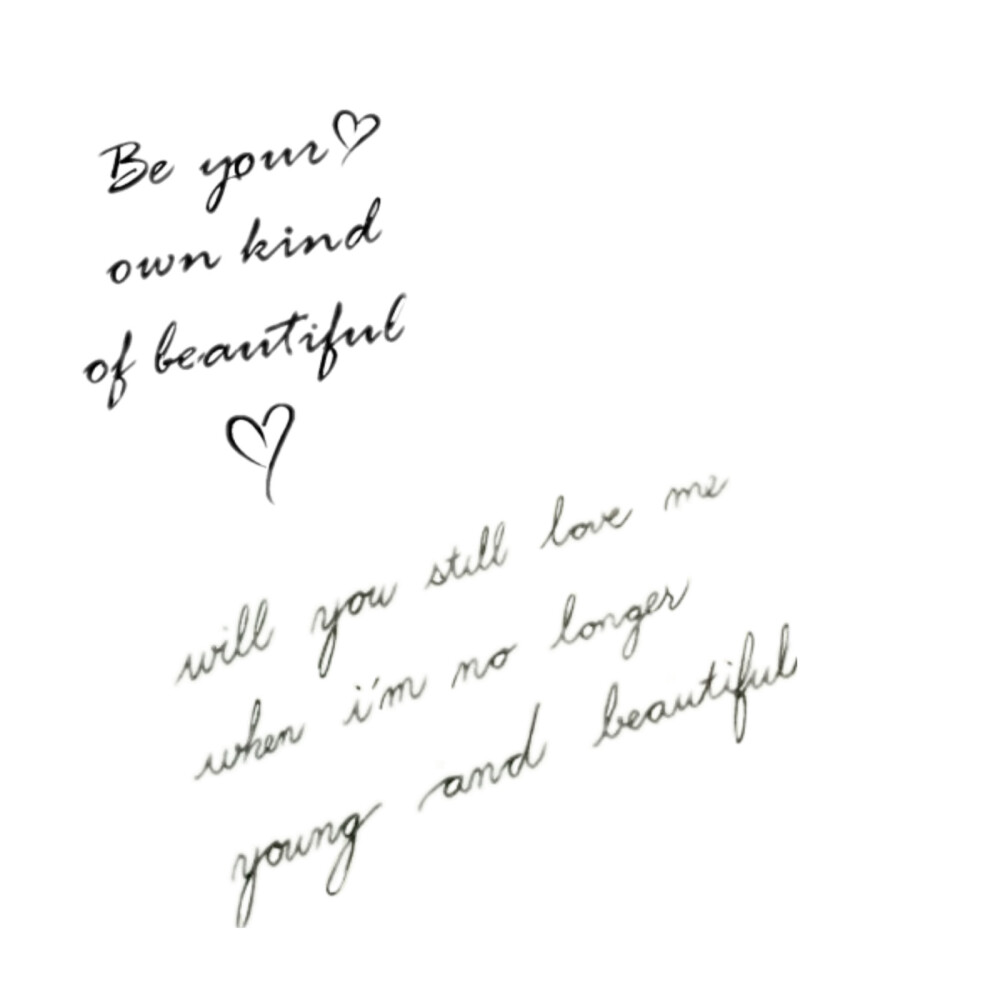 Be your
own kind
of beautiful
will you still love me
when i'm no longer
young and beautiful